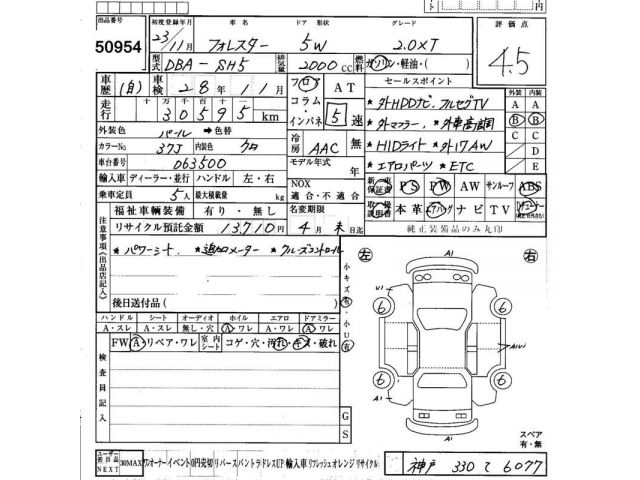 出品番号 初度登録年月 車名 ドア 形状 グレード 評価点
50954 23/11月 フォレスター 5W 2.0XT 4.5
型式 DBA-SH5 排気量 2000cc 燃料 ガソリン・軽油・( )
車歴 (自) 車検 28年 11月 フロア AT セールスポイント 外装 内装
走行 十万 万 千 百 十 30595km コラム・インパネ 5速
*外HDDナビ.フルセグTV A A
外装色 パール→色替 *外マフラー. *外車高調 B B
カラーNo 37J 内装色 クロ 冷房 AAC 無 *HIDライト *外17AW C C
車台番号 063500 モデル年式 年 *エアロパーツ *ETC D
輸入車 ディーラー・並行 ハンドル 左・右 E
乗車定員 5人 最大積載量 kg NOX 適合・不適合 新車保証書 PS PW AW サンルーフ ABS
福祉車輌装備 有り・無し 名変期限 取扱説明書 本革 エアバッグ ナビ TV
リサイクル預託金額 13,710円 4月末日迄 純正装備品のみ丸印
注意事項(出品店記入)
*パワーシート *追加メーター *クルーズコントロール
後日送付品( )
小キズ有・小U有
左 右
A1
U1
6 6
A1U1
6 6
A1 A1
ハンドル シート オーディオ ホイル エアロ ドアミラー
A・スレ A・スレ 無し・穴 A・ワレ A・ワレ A・ワレ
FW A・リペア・ワレ 室内シート コゲ・穴・汚れ・キズ・破れ
検査員記入
G
S
スペア
有・無
ユーザー初出品NEXT 30MAX ワンオーナー イベント 0円売切 リバース バントラ ドレスUP 輸入車 リフレッシュ オレンジ リサイクル
神戸 330 て 6077